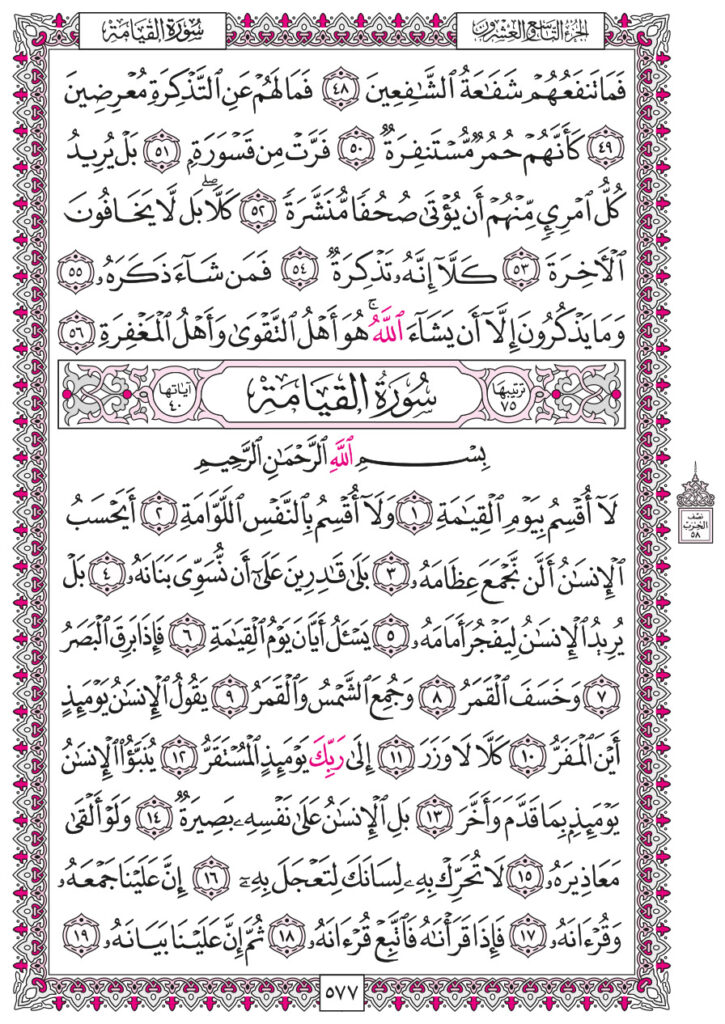 الجزء التاسع والعشرون
سورة القيامة
فَمَا تَنفَعُهُمْ شَفَاعَةُ الشَّافِعِينَ ٤٨ فَمَا لَهُمْ عَنِ التَّذْكِرَةِ مُعْرِضِينَ
٤٩ كَأَنَّهُمْ حُمُرٌ مُّسْتَنفِرَةٌ ٥٠ فَرَّتْ مِن قَسْوَرَةٍ ٥١ بَلْ يُرِيدُ
كُلُّ امْرِئٍ مِّنْهُمْ أَن يُؤْتَىٰ صُحُفًا مُّنَشَّرَةً ٥٢ كَلَّا ۖ بَل لَّا يَخَافُونَ
الْآخِرَةَ ٥٣ كَلَّا إِنَّهُ تَذْكِرَةٌ ٥٤ فَمَن شَاءَ ذَكَرَهُ ٥٥
وَمَا يَذْكُرُونَ إِلَّا أَن يَشَاءَ اللَّهُ ۚ هُوَ أَهْلُ التَّقْوَىٰ وَأَهْلُ الْمَغْفِرَةِ ٥٦
ترتيبها ٧٥
سُورَةُ الْقِيَامَةِ
آياتها ٤٠
بِسْمِ اللَّهِ الرَّحْمَٰنِ الرَّحِيمِ
لَا أُقْسِمُ بِيَوْمِ الْقِيَٰمَةِ ١ وَلَا أُقْسِمُ بِالنَّفْسِ اللَّوَّامَةِ ٢ أَيَحْسَبُ
الْإِنسَٰنُ أَلَّن نَّجْمَعَ عِظَامَهُ ٣ بَلَىٰ قَٰدِرِينَ عَلَىٰ أَن نُّسَوِّيَ بَنَانَهُ ٤ بَلْ
يُرِيدُ الْإِنسَٰنُ لِيَفْجُرَ أَمَامَهُ ٥ يَسْـَٔلُ أَيَّانَ يَوْمُ الْقِيَٰمَةِ ٦ فَإِذَا بَرِقَ الْبَصَرُ
٧ وَخَسَفَ الْقَمَرُ ٨ وَجُمِعَ الشَّمْسُ وَالْقَمَرُ ٩ يَقُولُ الْإِنسَٰنُ يَوْمَئِذٍ
أَيْنَ الْمَفَرُّ ١٠ كَلَّا لَا وَزَرَ ١١ إِلَىٰ رَبِّكَ يَوْمَئِذٍ الْمُسْتَقَرُّ ١٢ يُنَبَّؤُا الْإِنسَٰنُ
يَوْمَئِذٍ بِمَا قَدَّمَ وَأَخَّرَ ١٣ بَلِ الْإِنسَٰنُ عَلَىٰ نَفْسِهِ بَصِيرَةٌ ١٤ وَلَوْ أَلْقَىٰ
مَعَاذِيرَهُ ١٥ لَا تُحَرِّكْ بِهِ لِسَانَكَ لِتَعْجَلَ بِهِ ١٦ إِنَّ عَلَيْنَا جَمْعَهُ
وَقُرْءَانَهُ ١٧ فَإِذَا قَرَأْنَٰهُ فَاتَّبِعْ قُرْءَانَهُ ١٨ ثُمَّ إِنَّ عَلَيْنَا بَيَانَهُ ١٩
نصف
الحزب
٥٨
٥٧٧